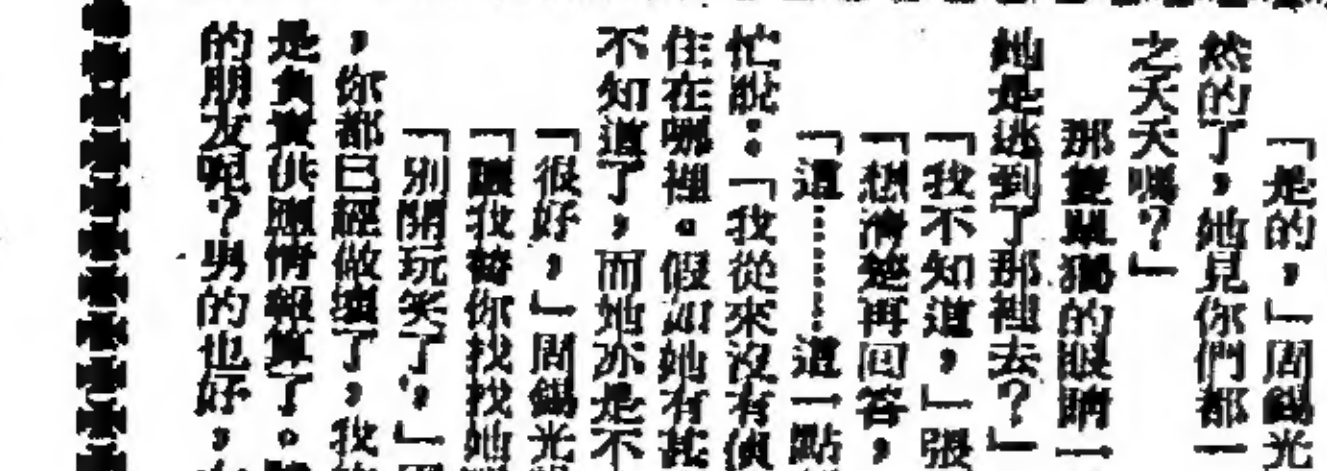 「是的，」周錫光
然的了，她見你們都一
之夭夭嗎？」
那隻單獨的眼睛一
她是逃到了那裡去？」
「我不知道，」張
「想清楚再回答，
「這………這一點
忙說：「我從來沒有偵
住在哪裡。假如她有甚
不知道了，而她亦是不
「很好，」周錫光
「讓我替你找找她
「別開玩笑了，」周
，你都已經做壞了，我
是負責供應情報算了。
的朋友呢？男的也好，